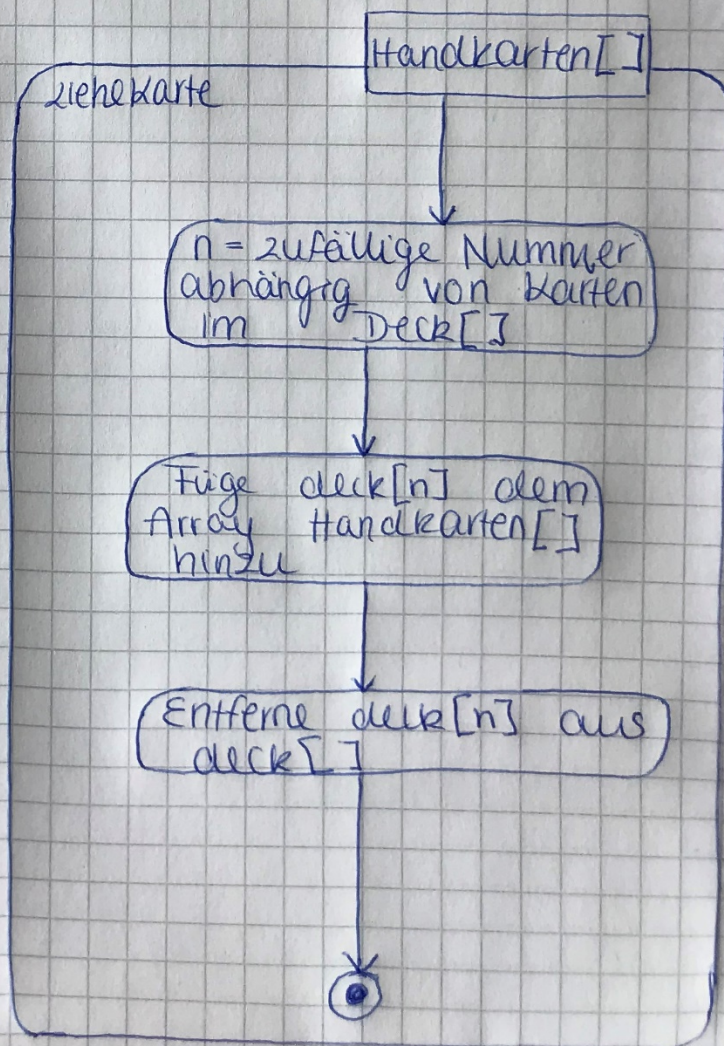 Handkarten[]
ziehekarte
n = zufällige Nummer
abhängig von Karten
im Deck[]
Füge deck[n] dem
Array Handkarten[]
hinzu
Entferne deck[n] aus
deck[]